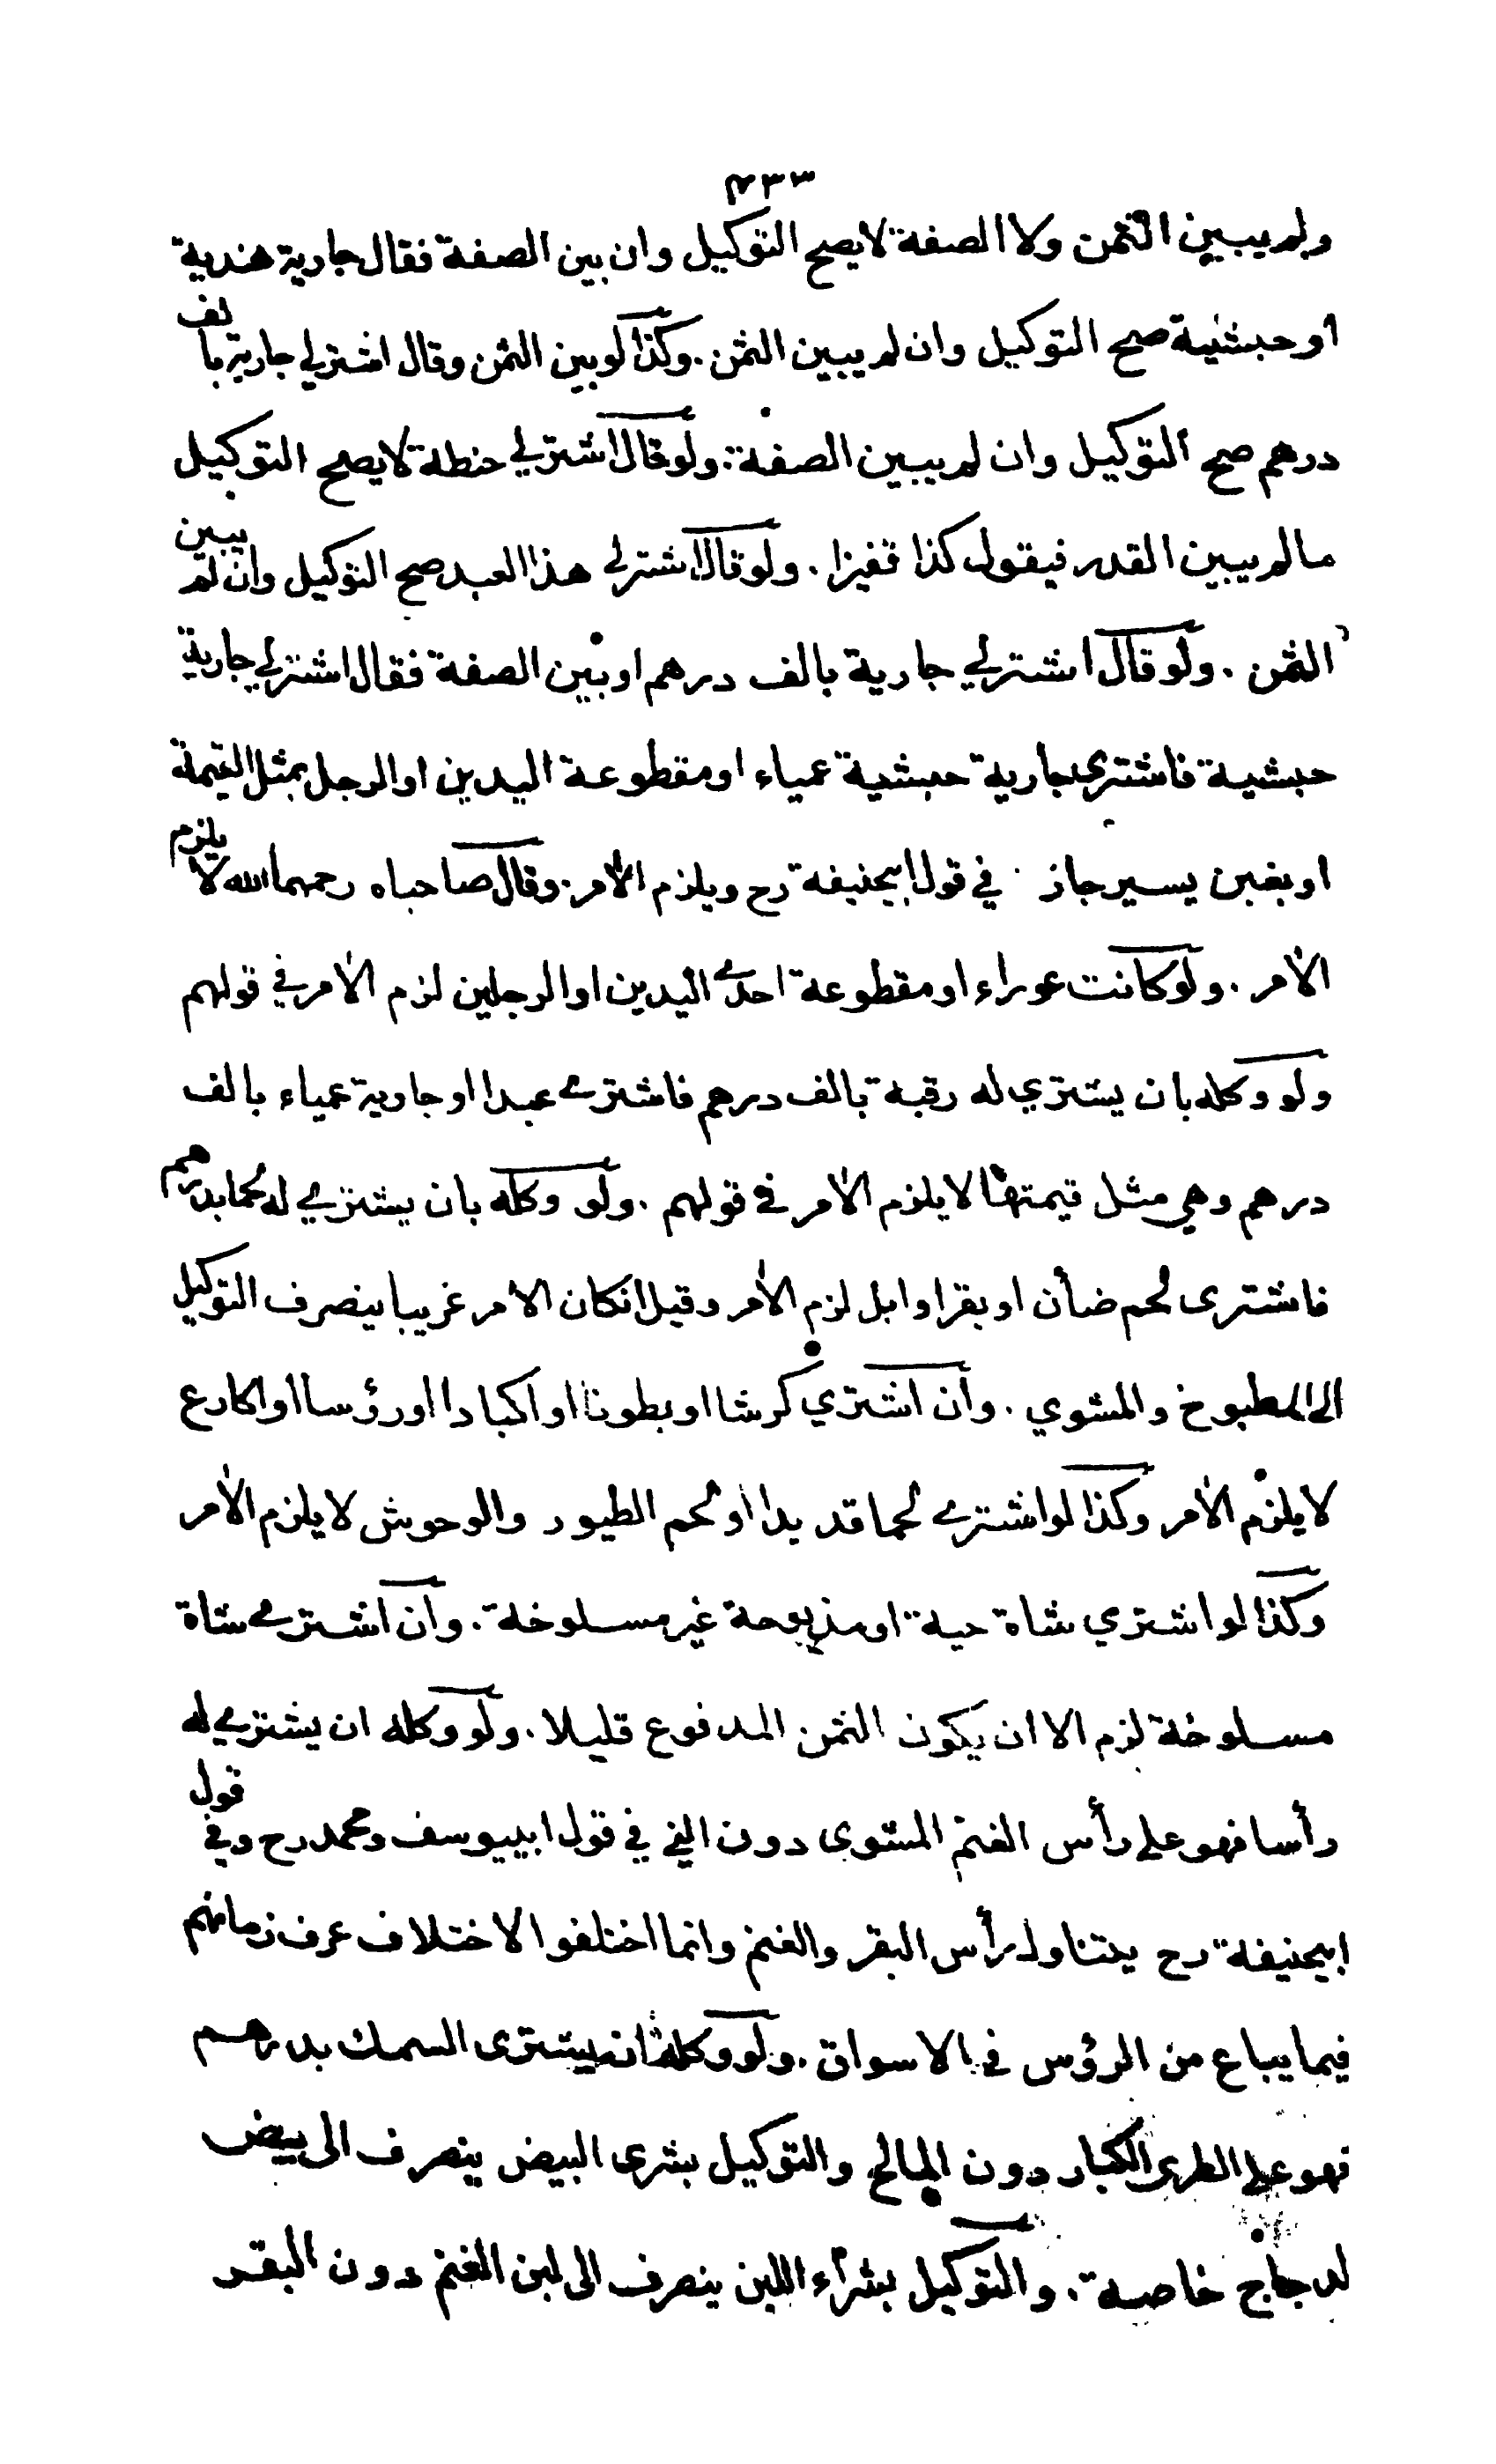 ٢٣٣
ولم يبين الثمن ولا الصفة لا يصح التوكيل وان بين الصفة فقال جارية هندية
او حبشية صح التوكيل وان لم يبين الثمن. وكذا لو بين الثمن وقال اشتر لي جارية بالف
درهم صح التوكيل وان لم يبين الصفة. ولو قال اشتر لي حنطة لا يصح التوكيل
ما لم يبين القدر فيقول كذا قفيزا. ولو قال اشتر لي هذا العبد صح التوكيل وان لم يبين
الثمن. ولو قال اشتر لي جارية بالف درهم او بين الصفة فقال اشتر لي جارية
حبشية فاشترى جارية حبشية عمياء او مقطوعة اليدين او الرجل بمثل القيمة
او بغبن يسير جاز في قول ابيحنيفة رح ويلزم الآمر. وقال صاحباه رحمهما الله لا يلزم
الآمر. ولو كانت عوراء او مقطوعة احدى اليدين او الرجلين لزم الآمر في قولهم
ولو وكله بان يشتري له رقبة بالف درهم فاشترى عبدا او جارية عمياء بالف
درهم وهي مثل قيمتها لا يلزم الآمر في قولهم. ولو وكله بان يشتري له لحما بدرهم
فاشترى لحم ضأن او بقر او ابل لزم الآمر وقيل انكان الآمر غريبا ينصرف التوكيل
الى المطبوخ والمشوي. وان اشتري كرشا او بطونا او اكبادا او رؤسا او اكارع
لا يلزم الآمر وكذا لو اشترى لحما قديدا او لحم الطيور والوحوش لا يلزم الآمر
وكذا لو اشتري شاة حية او مذبوحة غير مسلوخة. وان اشترى شاة
مسلوخة لزم الا ان يكون الثمن المدفوع قليلا. ولو وكله ان يشتري له
رأسا فهو على رأس الغنم المشوى دون الني في قول ابييوسف ومحمد رح وفي قول
ابيحنيفة رح يتناول رأس البقر والغنم وانما اختلفوا لاختلاف عرف زمانهم
فيما يباع من الرؤس في الاسواق. ولو وكله ان يشترى السمك بدرهم
فهو على الطرى الكبار دون المالح والتوكيل بشرى البيض ينصرف الى بيض
لدجاج خاصة. والتوكيل بشرآء اللبن ينصرف الى لبن الغنم دون البقر